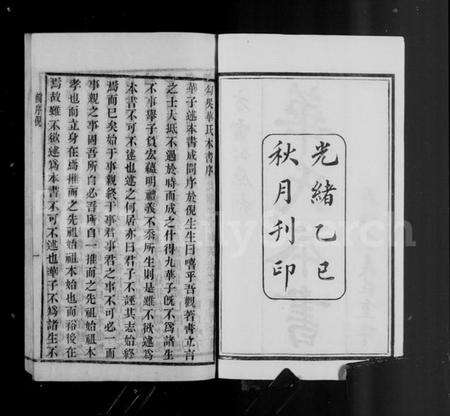 光緒乙巳
秋月刊印
勾吳華氏本書序
華子述本書成問序於倪生生曰嘻乎吾觀著書立言
之士大抵不過於時而成之什得九華子旣不爲諸生
不事舉子負宏藏明禮義不忝所生則是雖不欲述爲
本書不可不述也述之何居亦曰君子不誣其志始終
焉而已矣始于事親終于事君事君之事不可必一而
事親之事固吾所自必吾所自一推而之先祖始祖本
孝也而立身在焉推而之先祖始祖本始也而裕後在
焉故雖不欲述爲本書不可不述也華子不爲諸生不